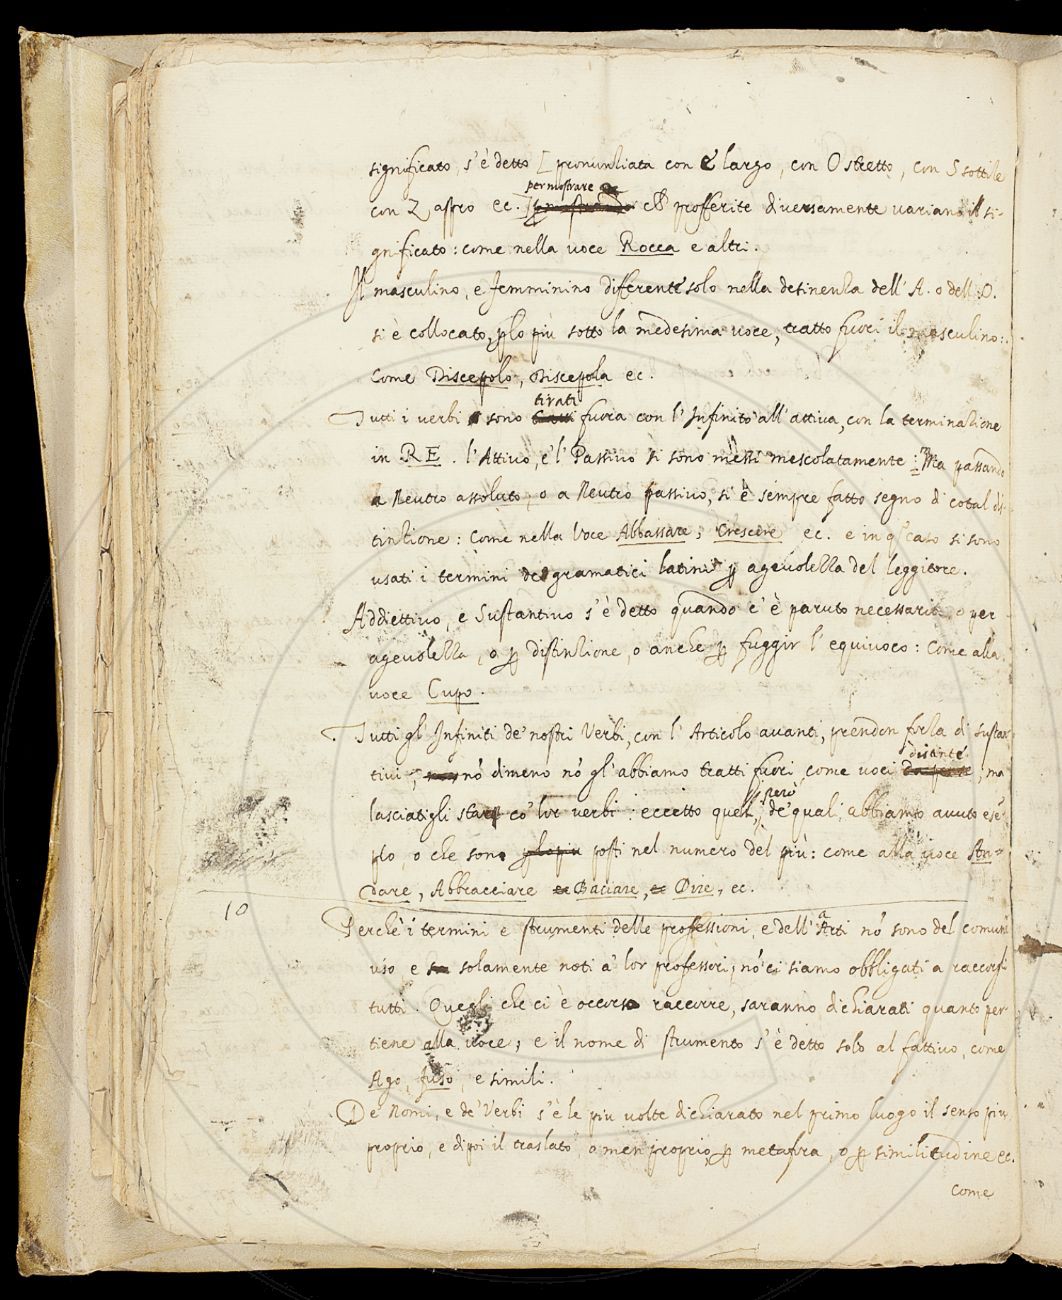 significato, s'è detto [pronunziata con E largo, con O stretto, con S sottile
per mostrare
con Z aspro ec.] che profferite diversamente variano il si-
gnificato: come nella voce Rocca e altri.
Il masculino, e femminino differente solo nella desinenza dell'A. o dell'O.
si è collocato, p lo più sotto la medesima voce, tratto fuori il masculino:
Come Discepolo, Discepola ec.
tirati
Tutti i verbi sono tratti fuora con l'Infinito all'attiva, con la terminazione
in RE. l'Attivo, e l'Passivo si sono messi mescolatamente: Ma passando
a Neutro assoluto, o a Neutro passivo, si è sempre fatto segno di cotal dis-
tinzione: Come nella voce Abbassare, Crescere ec. e in q̃sto caso si sono
usati i termini de gramatici latini p agevolezza del leggitore.
Addiettivo, e Sustantivo s'è detto quando c'è paruto necessario, o per
agevolezza, o p distinzione, o anche p fuggir l'equivoco: Come alla
voce Cupo.
Tutti gl'Infiniti de' nostri Verbi, con l'Articolo avanti, prendon forza di sustan
disante
tivi, nõ dimeno nõ gl'abbiamo tratti fuori come voci da perse, ma
però
lasciatigli star co' lor verbi: eccetto quelli, de' quali abbiamo avuto esẽ-
plo, o che sono p lo più posti nel numero del più: come alla voce An-
dare, Abbracciare e Baciare, e Dire, ec.
10
Perchè i termini e strumenti delle professioni, e dell'Arti nõ sono del comune
uso e solamente noti a' lor professori, nõ ci siamo obbligati a raccorgli
tutti. Quegli che ci è occorso raccorre, saranno dichiarati quanto per-
tiene alla voce, e il nome di strumento s'è detto solo al fattivo, come
Ago, Fuso, e simili.
De Nomi, e de' Verbi s'è le piu volte dichiarato nel primo luogo il senso piu
proprio, e dipoi il traslato, o men proprio, p metafora, o p similitudine ec.
Come